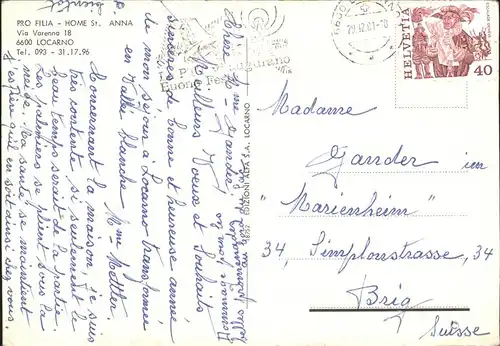 PRO FILIA - HOME St. ANNA
Via Varenna 18
6600 LOCARNO
Tel. 093 - 31.17.96
Chère Mme Gander
Meilleurs Voeux et Souhaits
sincères de bonne et heureuse année
de mon séjour à Locarno transformée
en Vallée blanche Mme Mettler.
Concernant la maison, je suis
très contente si seulement le
beau temps serait de la partie.
Les palmiers se plient sous la
neige. Ma santé se maintient
j'espère qu'il en soit ainsi chez vous.
Buone Feste
EDIZIONI ALFA S.A. LOCARNO
HELVETIA
40
Madame
Gander im
"Marienheim"
34, Simplonstrasse, 34
Brig
Suisse